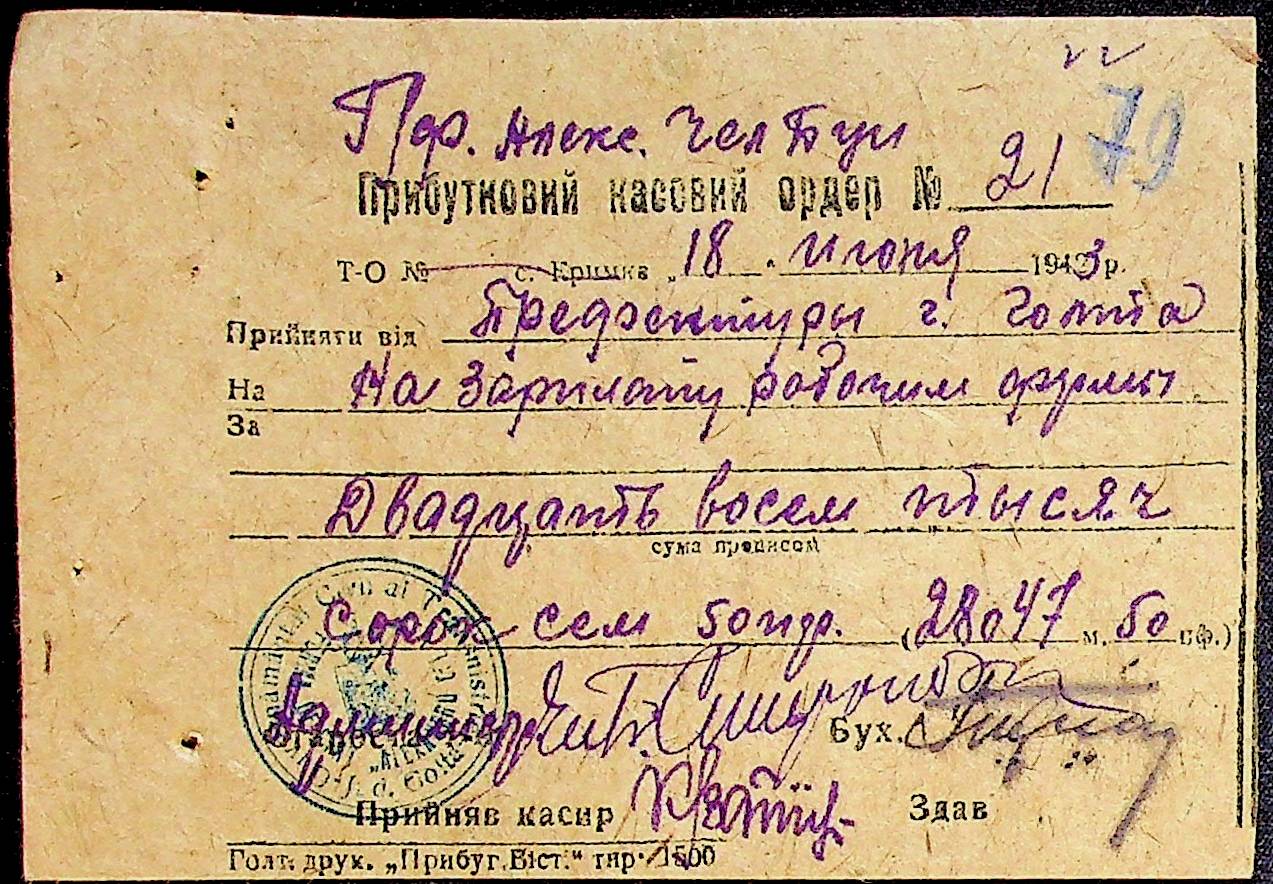 79
Пф. Алекс. Чел Буи
Прибутковий кассовий ордер № 21
Т-О № с. Кримка „18 . июня 1943 р.
Прийняти від Префектуры г. Голта
На На Зарплату рабочим фермы
За
Двадцать восем тысяч
сума прописом
Сорок сем 50 пф. (28047 м. 50 пф.)
Администр Бух.
Прийняв касир Здав
Голт. друк. „Прибуг.Віст.“ тир. 1500